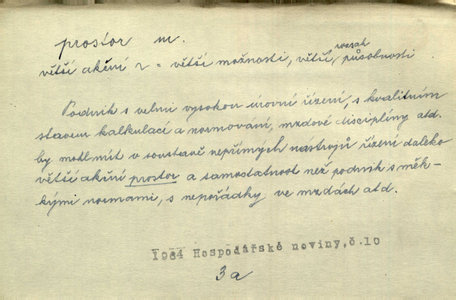 prostor m.
rozsah
větší akční r = větší možnosti, větší působnosti
Podnik s velmi vysokou úrovní řízení, s kvalitním
stavem kalkulací a normování, mzdové disciplíny atd.
by mohl mít v soustavě nepřímých nástrojů řízení daleko
větší akční prostor a samostatnost než podnik s měk-
kými normami, s nepořádky ve mzdách atd.
1984 Hospodářské noviny, č.10
3a